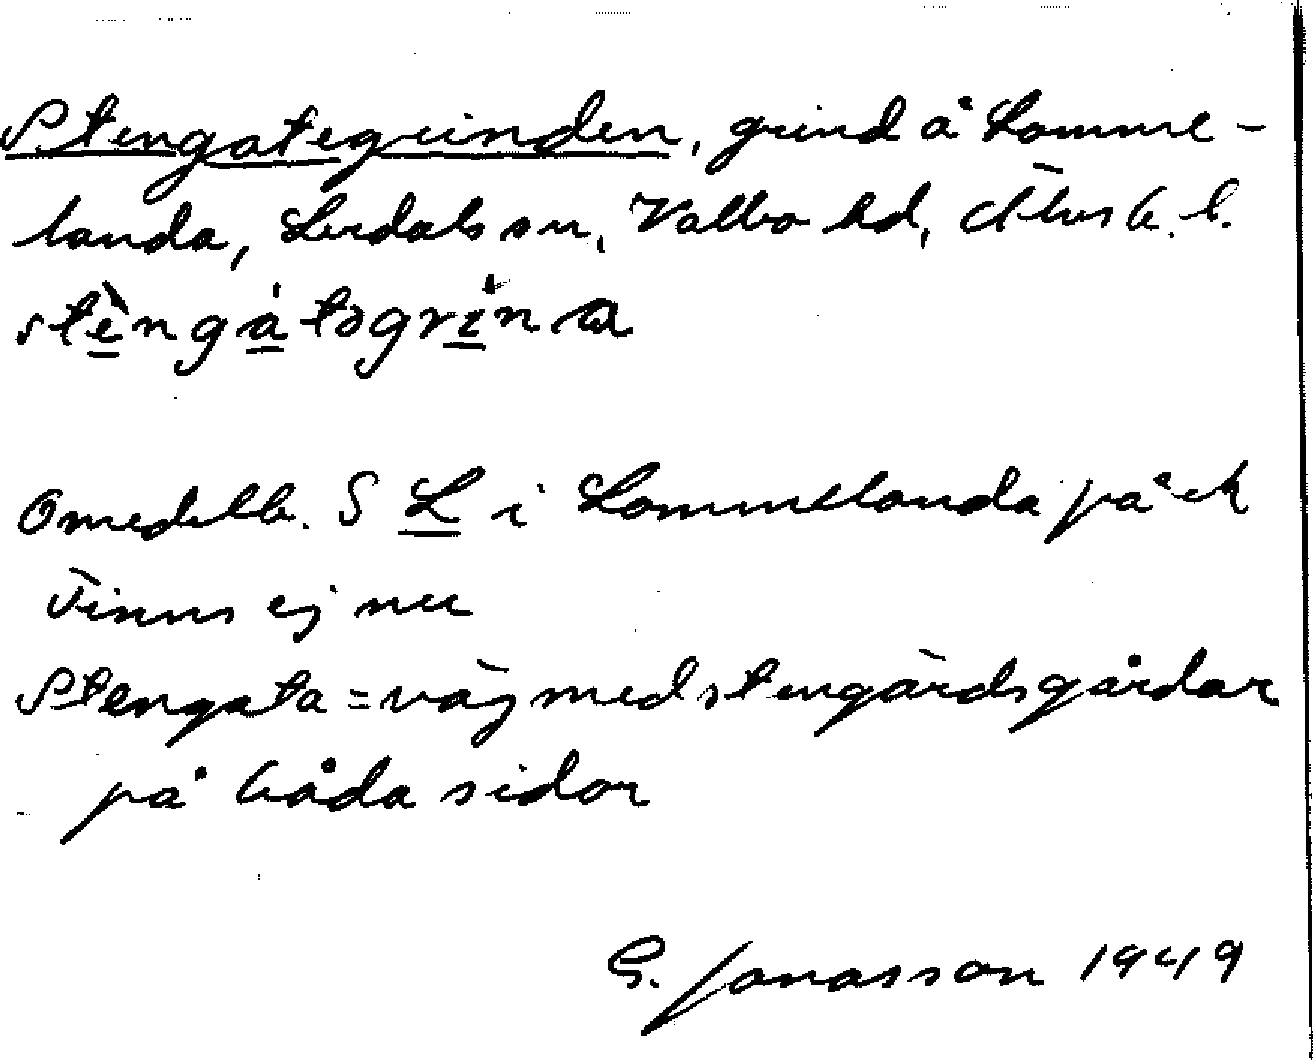 Stengategrinden, grind å Lomme-
landa, Lerdals sn, Valbo hd, Älvsb. l.
stèngátəgrín a
Omedelb. S L i Lommelanda på ek
Finns ej nu
Stengata = väg med stengärdsgårdar
på båda sidor
G. Jonasson 1949